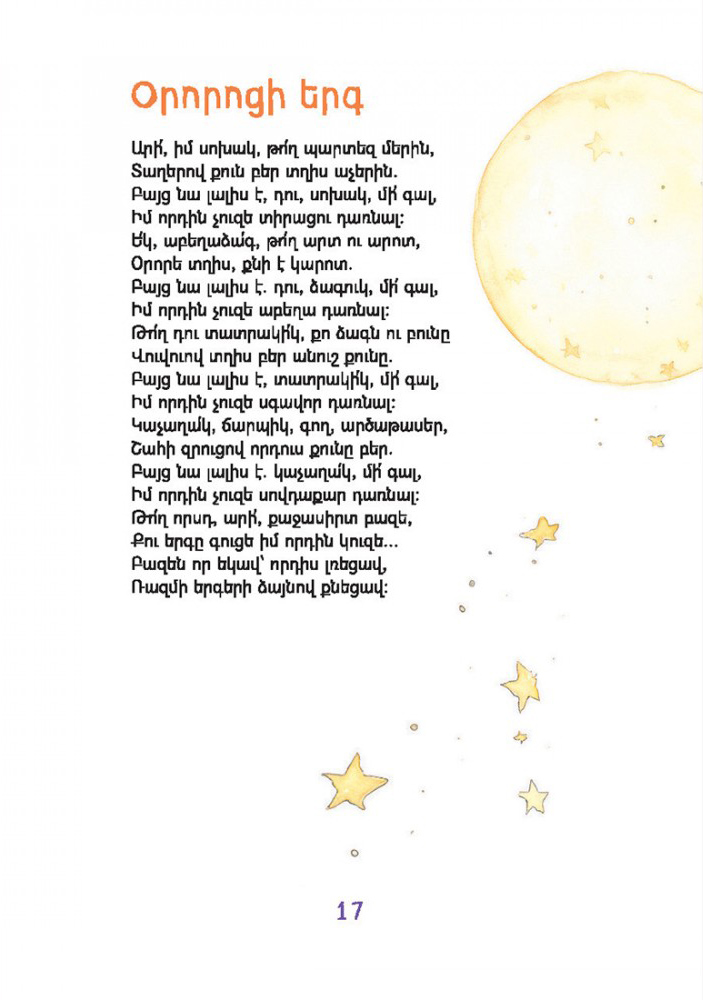 Օրորոցի երգ
Արի՛, իմ սոխակ, թո՛ղ պարտեզ մերին,
Տաղերով քուն բեր տղիս աչերին.
Բայց նա լալիս է, դու, սոխակ, մի՛ գալ,
Իմ որդին չուզե տիրացու դառնալ:
Ե՛կ, աբեղաձա՛գ, թո՛ղ արտ ու արոտ,
Օրորե տղիս, քնի է կարոտ.
Բայց նա լալիս է. դու, ձագուկ, մի՛ գալ,
Իմ որդին չուզե աբեղա դառնալ:
Թո՛ղ դու տատրակի՛կ, քո ձագն ու բունը
Վուվուով տղիս բեր անուշ քունը.
Բայց նա լալիս է, տատրակի՛կ, մի՛ գալ,
Իմ որդին չուզե սգավոր դառնալ:
Կաչաղա՛կ, ճարպիկ, գող, արծաթասեր,
Շահի զրուցով որդուս քունը բեր.
Բայց նա լալիս է. կաչաղա՛կ, մի՛ գալ,
Իմ որդին չուզե սովդաքար դառնալ:
Թո՛ղ որսդ, արի՛, քաջասիրտ բազե,
Քու երգը գուցե իմ որդին կուզե...
Բազեն որ եկավ՝ որդիս լռեցավ,
Ռազմի երգերի ձայնով քնեցավ:
17